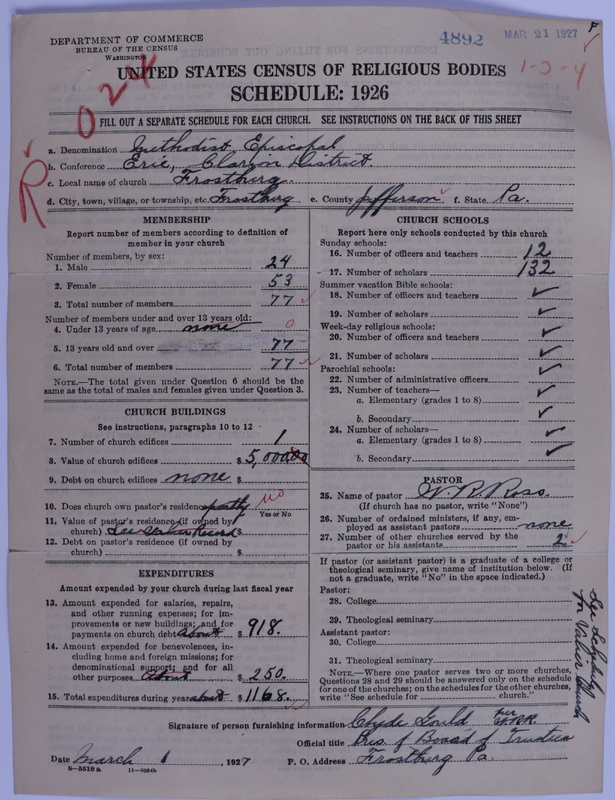 DEPARTMENT OF COMMERCE
BUREAU OF THE CENSUS
WASHINGTON
4892
MAR 21 1927
F
1-3-4
024
R
UNITED STATES CENSUS OF RELIGIOUS BODIES
SCHEDULE: 1926
FILL OUT A SEPARATE SCHEDULE FOR EACH CHURCH. SEE INSTRUCTIONS ON THE BACK OF THIS SHEET
a. Denomination Methodist Episcopal
b. Conference Erie, Clarion District.
c. Local name of church Frostburg
d. City, town, village, or township, etc. Frostburg e. County Jefferson f. State Pa.
MEMBERSHIP
Report number of members according to definition of
member in your church
Number of members, by sex:
1. Male 24
2. Female 53
3. Total number of members 77
Number of members under and over 13 years old:
4. Under 13 years of age none 0
5. 13 years old and over 77
6. Total number of members 77
NOTE.—The total given under Question 6 should be the
same as the total of males and females given under Question 3.
CHURCH BUILDINGS
See instructions, paragraphs 10 to 12
7. Number of church edifices 1
8. Value of church edifices $ 5,000.00
9. Debt on church edifices none $
10. Does church own pastor's residence partly no
Yes or No
11. Value of pastor's residence (if owned by
church) See Valier Record $
12. Debt on pastor's residence (if owned by
church) $
EXPENDITURES
Amount expended by your church during last fiscal year
13. Amount expended for salaries, repairs,
and other running expenses; for im-
provements or new buildings; and for
payments on church debt About $ 918.
14. Amount expended for benevolences, in-
cluding home and foreign missions; for
denominational support; and for all
other purposes About $ 250.
15. Total expenditures during year about $ 1168.
CHURCH SCHOOLS
Report here only schools conducted by this church
Sunday schools:
16. Number of officers and teachers 12
17. Number of scholars 132
Summer vacation Bible schools:
18. Number of officers and teachers ✓
19. Number of scholars ✓
Week-day religious schools:
20. Number of officers and teachers ✓
21. Number of scholars ✓
Parochial schools:
22. Number of administrative officers ✓
23. Number of teachers—
a. Elementary (grades 1 to 8) ✓
b. Secondary ✓
24. Number of scholars—
a. Elementary (grades 1 to 8) ✓
b. Secondary ✓
PASTOR
25. Name of pastor W. R. Ross.
(If church has no pastor, write "None")
26. Number of ordained ministers, if any, em-
ployed as assistant pastors none
27. Number of other churches served by the
pastor or his assistants 2
If pastor (or assistant pastor) is a graduate of a college or
theological seminary, give name of institution below. (If
not a graduate, write "No" in the space indicated.)
Pastor:
28. College
29. Theological seminary
Assistant pastor:
30. College
31. Theological seminary
NOTE.—Where one pastor serves two or more churches,
Questions 28 and 29 should be answered only on the schedule
for one of the churches; on the schedules for the other churches,
write "See schedule for church."
for Valier Church
Signature of person furnishing information Clyde Gould Per
Official title Pres of Board of Trustees
Date March 1, 1927 P. O. Address Frostburg Pa.
8—5518a 11—9054b